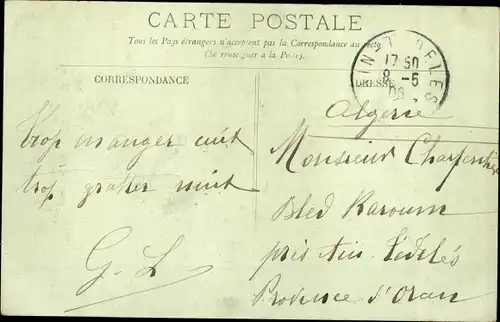 CARTE POSTALE
Tous les Pays étrangers n'acceptent pas la Correspondance au recto
(Se renseigner à la Poste).
CORRESPONDANCE
ADRESSE
17 50
8 -5
08
Algerie
Trop manger cuit
trop gratter nuit
G. L
Monsieur Charpentier
Bled Karoum
près Ain Tédelès
Province d'Oran